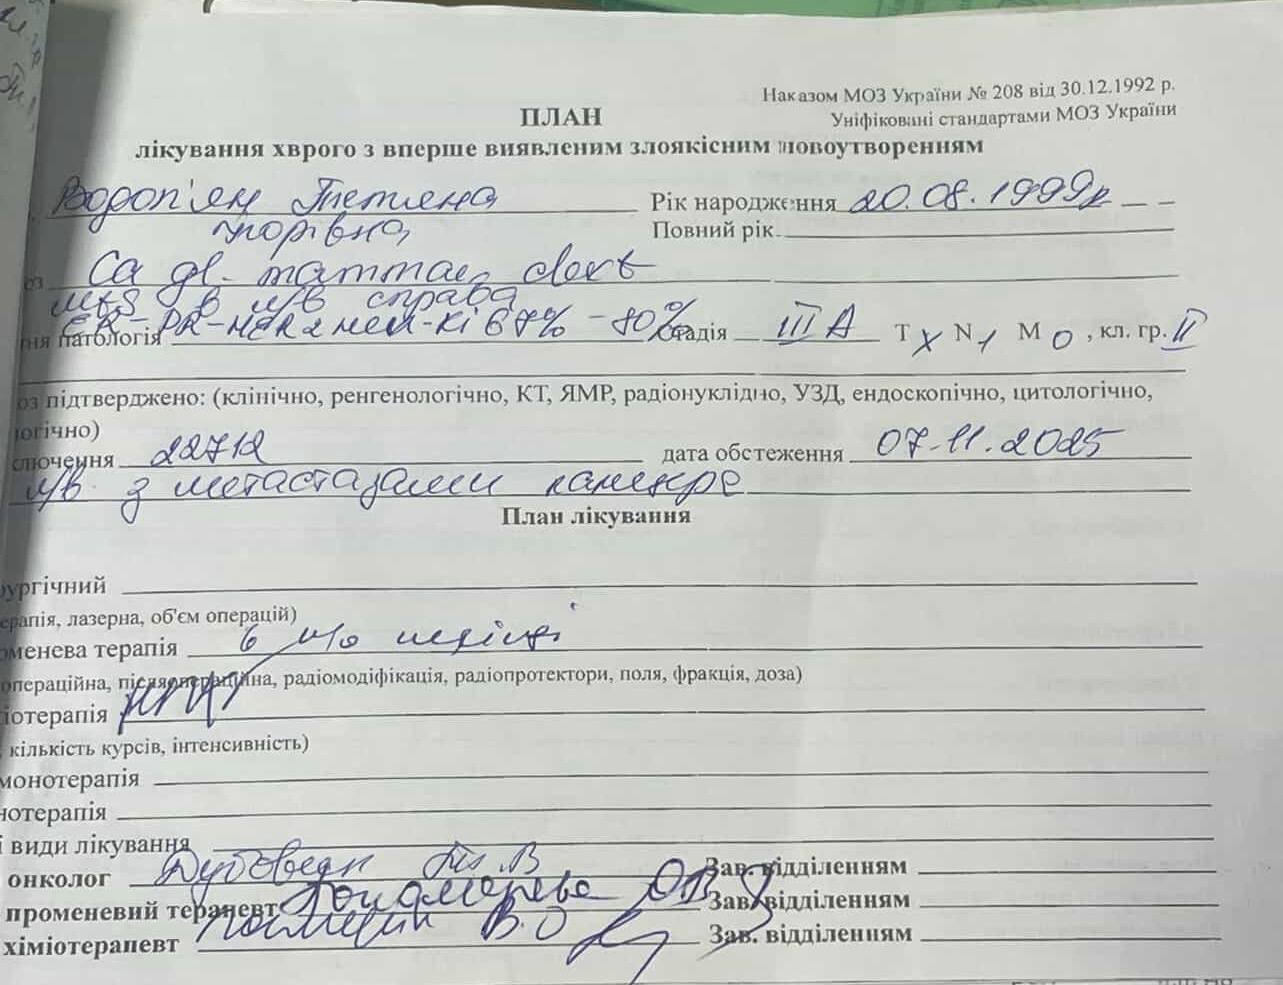 Наказом МОЗ України № 208 від 30.12.1992 р.
Уніфіковані стандартами МОЗ України
ПЛАН
лікування хврого з вперше виявленим злоякісним новоутворенням
Водоп'ян Тетяна Рік народження 20.08.1999р
Ігорівна Повний рік
оз Ca gl. mammae dext
mts в л/в справа
ня патологія ER- PR- Her2 neu- Ki 67% - 80% стадія III A T x N 1 M 0 , кл. гр. II
оз підтверджено: (клінічно, ренгенологічно, КТ, ЯМР, радіонуклідно, УЗД, ендоскопічно, цитологічно,
логічно)
ключення 22712 дата обстеження 07.11.2025
л/в з метастазами канцеру
План лікування
рургічний
ерапія, лазерна, об'єм операцій)
оменева терапія в п/о періоді
операційна, післяопераційна, радіомодіфікація, радіопротектори, поля, фракція, доза)
іотерапія НПХТ
, кількість курсів, інтенсивність)
монотерапія
нотерапія
і види лікування
онколог Зав. відділенням
променевий терапевт Пономарьова О.В Зав. відділенням
хіміотерапевт В.О Зав. відділенням